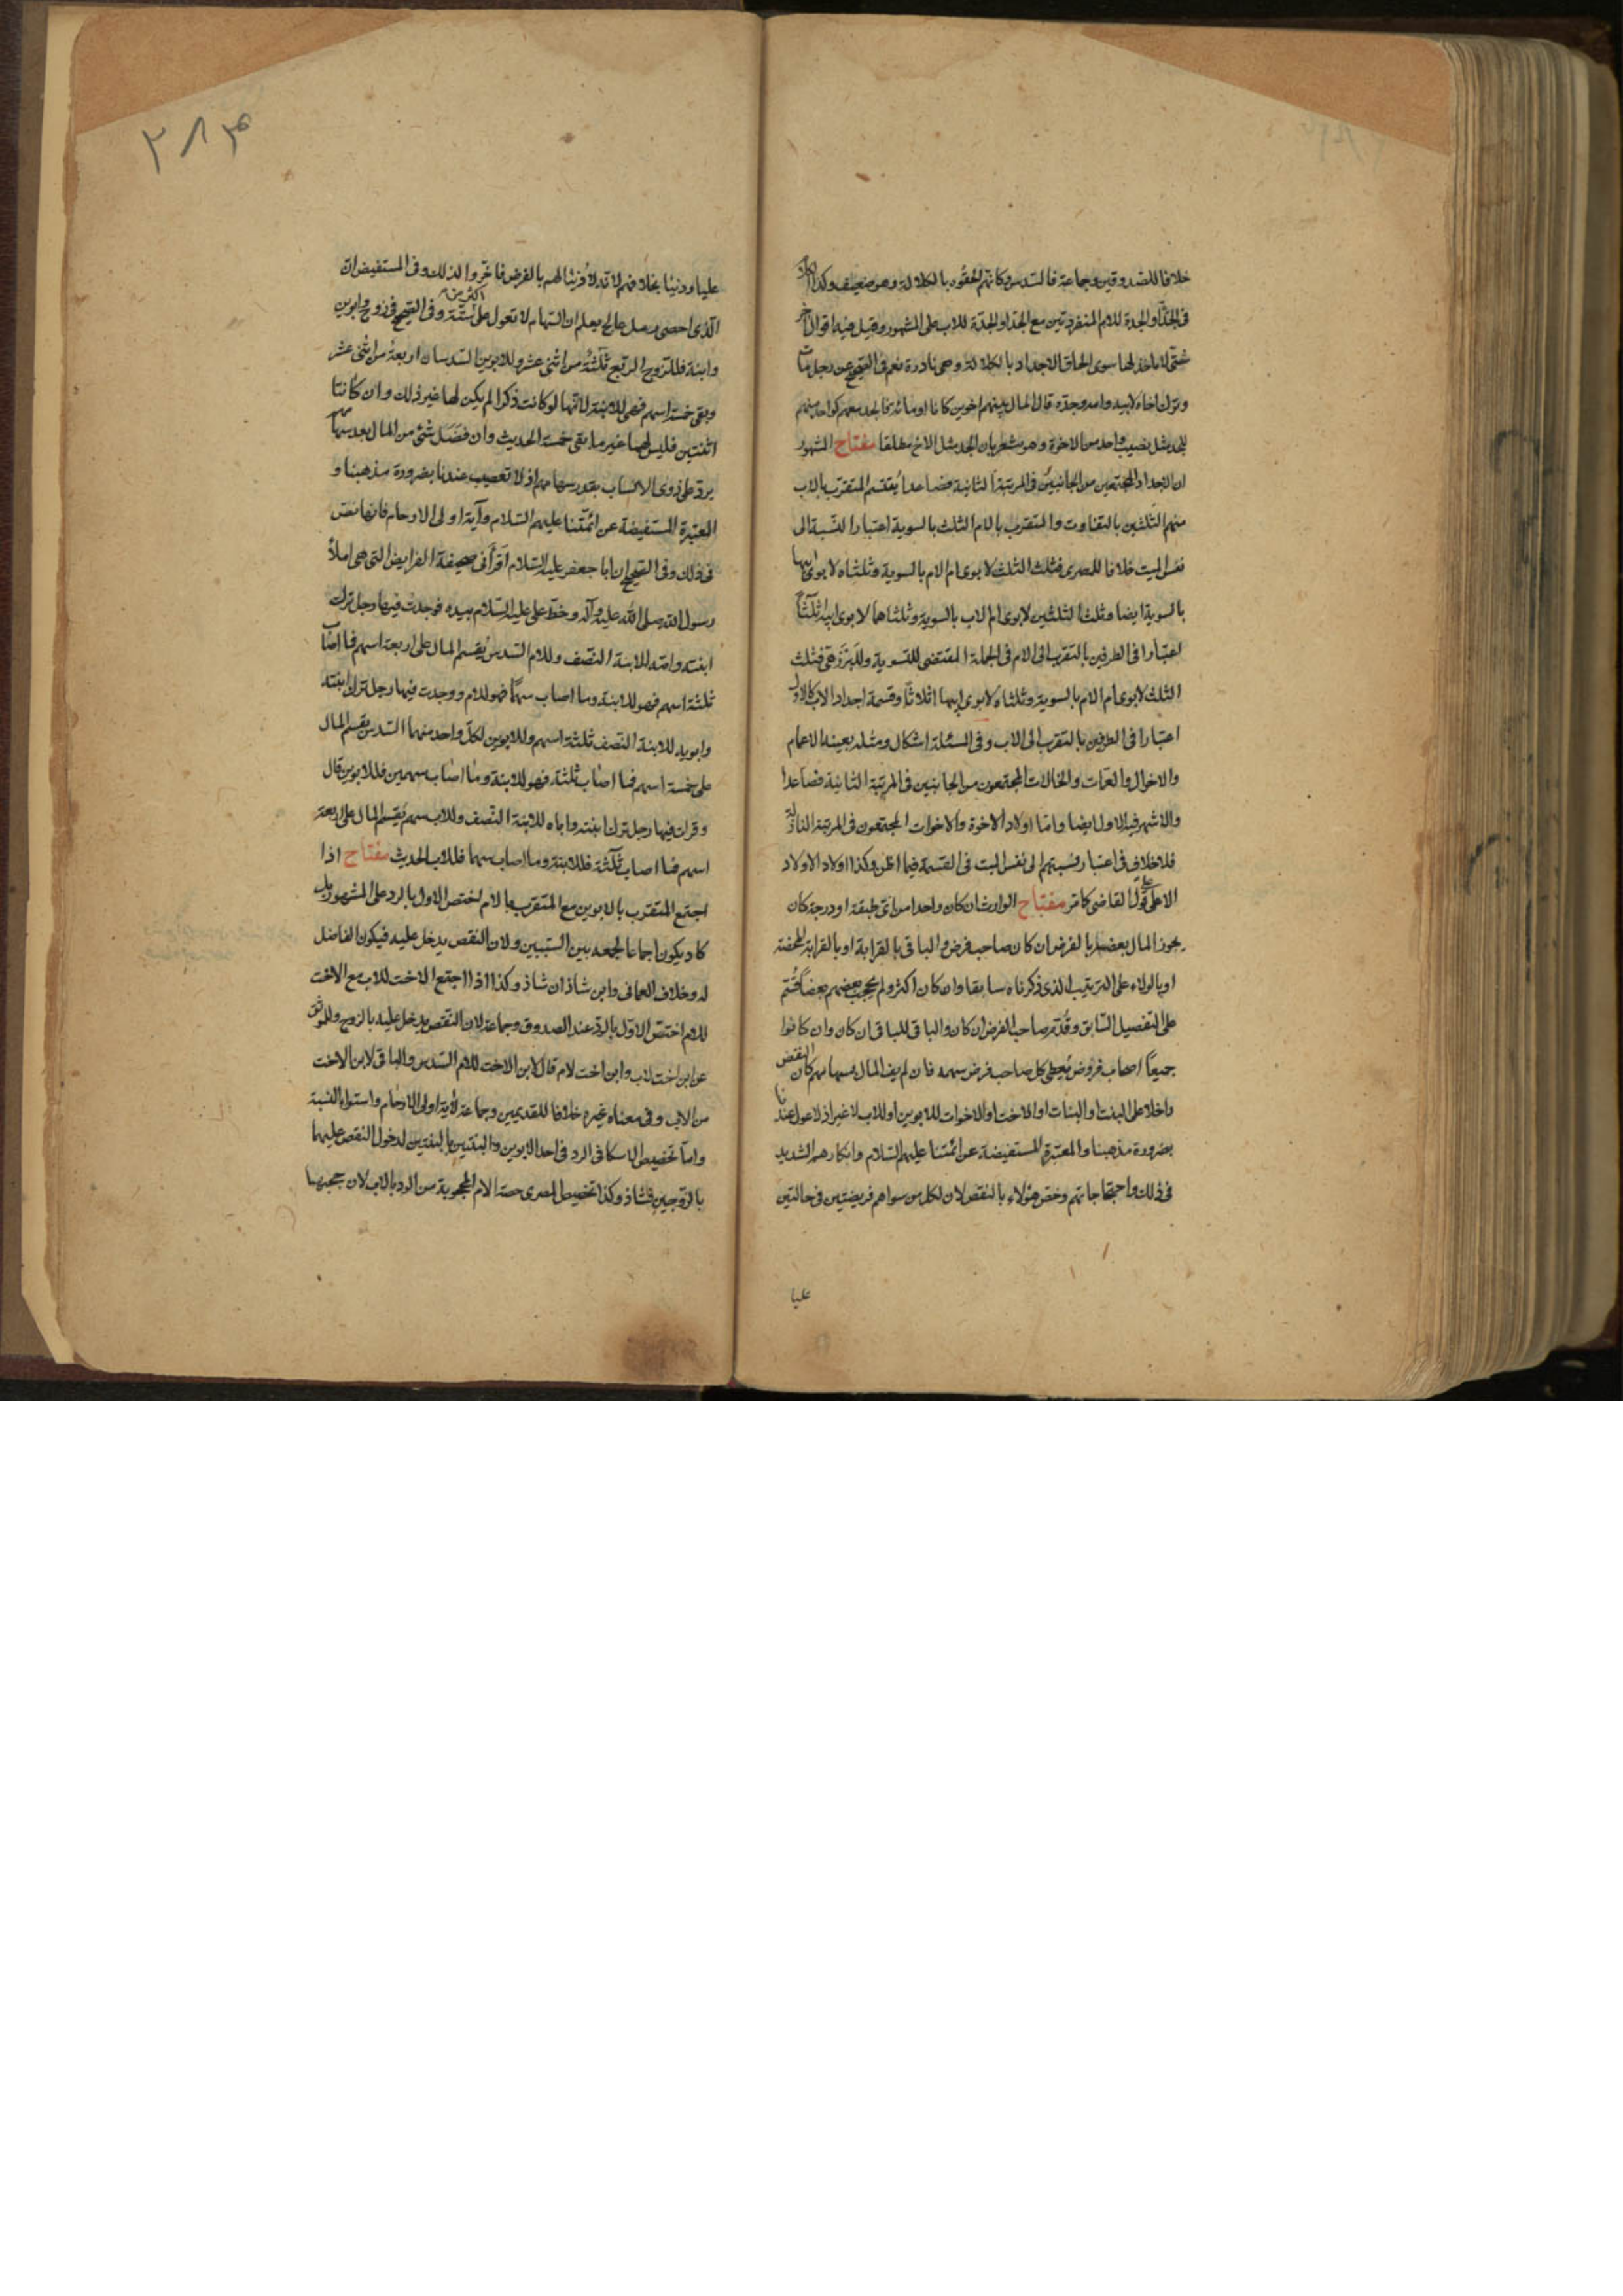 خلافا للصدوقين وجماعة فالسدس وكانهم الحقوه بالكلالة وهو ضعيف وكذا الكلام
في الجد او الجدة للام المنفردتين مع الجد او الجدة للاب على المشهور وقيل فيه اقوال اخر
شتى لا ماخذ لها سوى الحاق الاجداد بالكلالة وهى نادرة نعم في الصحيح عن رجل مات
وترك اخاه لابيه وامه وجده قال المال بينهم اخوين كانا او مائة فالجد معهم كواحد منهم
للجد مثل نصيب واحد من الاخوة وهو مشعر بان الجد مثل الاخ مطلقا مفتاح المشهور
ان الاجداد المجتمعين من الجانبين في المرتبة الثانية فصاعدا يقتسم المتقرب بالاب
منهم الثلثين بالتفاوت والمتقرب بالام الثلث بالسوية اعتبارا للنسبة الى
نفس الميت خلافا للمصرى فثلث الثلث لابوى ام الام بالسوية وثلثاه لابوى ابيها
بالسوية ايضا وثلث الثلثين لابوى ام الاب بالسوية وثلثاهما لابوى ابيه اثلاثا
اعتبارا في الطرفين بالتقرب الى الام في الجملة المقتضى للتسوية وللبرزهى فثلث
الثلث لابوى ام الام بالسوية وثلثاه لابوى ابيها اثلاثا وقسمة اجداد الاب كالاول
اعتبارا في الطرفين بالتقرب الى الاب وفي المسئلة اشكال ومثله بعينه الاعمام
والاخوال والعمات والخالات المجتمعون من الجانبين في المرتبة الثانية فصاعدا
والاشهر فيه الاول ايضا واما اولاد الاخوة والاخوات المجتمعون في المرتبة النازلة
فلا خلاف في اعتبار نسبتهم الى نفس الميت في القسمة فيما اظن وكذا اولاد الاولاد
الا على قول القاضى كما مر مفتاح الوارث ان كان واحدا من اى طبقة او درجة كان
يحوز المال بعضه بالفرض ان كان صاحب فرض والباقى بالقرابة او بالقرابة المحضة
او بالولاء على الترتيب الذى ذكرناه سابقا وان كان اكثر ولم يحجب بعضهم بعضا قسم
على التفصيل السابق وقدم صاحب الفرض ان كان والباقى للباقى ان كان وان كانوا
جميعا اصحاب فروض يعطى كل صاحب فرض سهمه فان لم يف المال بسهامهم كان النقص
داخلا على البنت او البنات او الاخت او الاخوات للابوين او للاب لا غير اذ لا عول عندنا
بضرورة مذهبنا والمعتبرة المستفيضة عن ائمتنا عليهم السلام وانكارهم الشديد
في ذلك واحتجاجاتهم وخص هؤلاء بالنقص لان لكل من سواهم فريضتين في حالتين
عليا
٢٨٣
عليا ودنيا بخلافهم لا تدلا دنيا لهم بالفرض فاخروا لذلك وفي المستفيض ان
الذى احصى رمل عالج يعلم ان السهام لا تعول على اكثر من ستة وفي الصحيح في زوج وابوين
وابنة فللزوج الربع ثلثة من اثنى عشر وللابوين السدسان اربعة من اثنى عشر
وبقى خمسة اسهم فهى للابنة لانها لو كانت ذكرا لم يكن لها غير ذلك وان كانتا
اثنتين فليس لهما غير ما بقى خمسة الحديث وان فضل شئ من المال بعد سهامهم
يرد على ذوى الانساب بقدر سهامهم اذ لا تعصيب عندنا بضرورة مذهبنا و
المعتبرة المستفيضة عن ائمتنا عليهم السلام وآية اولى الارحام فانها نص
في ذلك وفي الصحيح ان ابا جعفر عليه السلام اقرأنى صحيفة الفرايض التى هى املاء
رسول الله صلى الله عليه وآله وخط على عليه السلام بيده فوجدت فيها رجل ترك
ابنته وامه للابنة النصف وللام السدس يقسم المال على اربعة اسهم فما اصاب
ثلثة اسهم فهو للابنة وما اصاب سهما فهو للام ووجدت فيها رجل ترك ابنته
وابويه للابنة النصف ثلثة اسهم وللابوين لكل واحد منهما السدس يقسم المال
على خمسة اسهم فما اصاب ثلثة فهو للابنة وما اصاب سهمين فللابوين قال
وقرات فيها رجل ترك ابنته واباه للابنة النصف وللاب سهم يقسم المال على اربعة
اسهم فما اصاب ثلثة فللابنة وما اصاب سهما فللاب الحديث مفتاح اذا
اجتمع المتقرب بالابوين مع المتقرب بالام اختص الاول بالرد على المشهور بل
كاد يكون اجماعا لجمعه بين السببين ولان النقص يدخل عليه فيكون الفاضل
له وخلاف العمانى وابن شاذان شاذ وكذا اذا اجتمع الاخت للاب مع الاخت
للام اختص الاول بالرد عند الصدوق وجماعة لان النقص يدخل عليه بالزوج وللموثق
عن ابن اخت لاب وابن اخت لام قال لابن الاخت للام السدس والباقى لابن الاخت
من الاب وفي معناه غيره خلافا للقديمين وجماعة لاية اولى الارحام واستواء النسبة
واما تخصيص الاسكافى الرد في احد الابوين والبنتين بالبنتين لدخول النقص عليهما
بالزوجين فشاذ وكذا تخصيص المصرى حصة الام المحجوبة من الرد بالاب لان حجبها